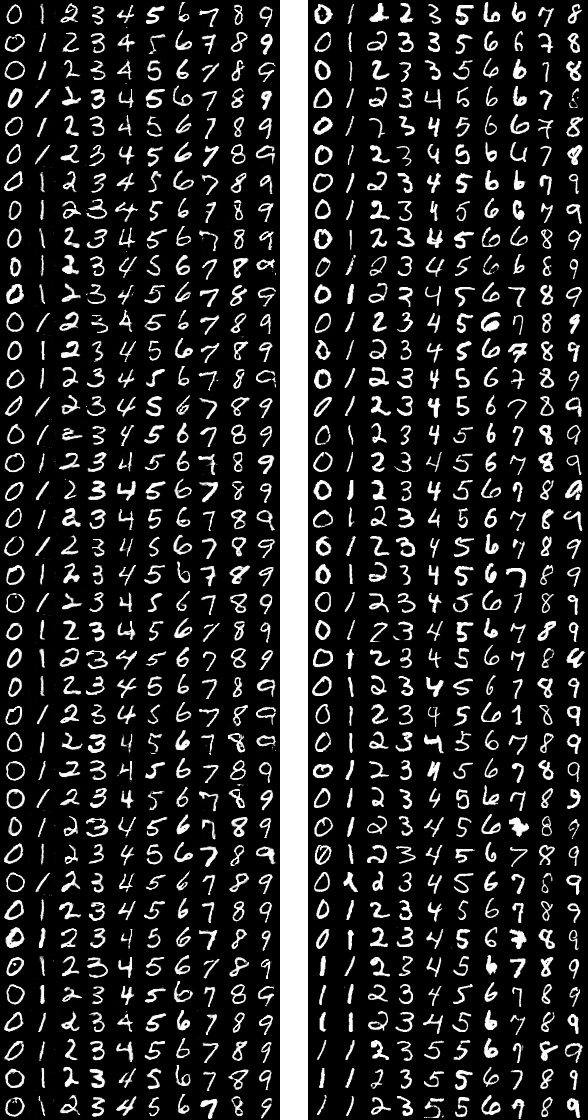 0 1 2 3 4 5 6 7 8 9
0 1 2 3 4 5 6 7 8 9
0 1 2 3 4 5 6 7 8 9
0 1 2 3 4 5 6 7 8 9
0 1 2 3 4 5 6 7 8 9
0 1 2 3 4 5 6 7 8 9
0 1 2 3 4 5 6 7 8 9
0 1 2 3 4 5 6 7 8 9
0 1 2 3 4 5 6 7 8 9
0 1 2 3 4 5 6 7 8 9
0 1 2 3 4 5 6 7 8 9
0 1 2 3 4 5 6 7 8 9
0 1 2 3 4 5 6 7 8 9
0 1 2 3 4 5 6 7 8 9
0 1 2 3 4 5 6 7 8 9
0 1 2 3 4 5 6 7 8 9
0 1 2 3 4 5 6 7 8 9
0 1 2 3 4 5 6 7 8 9
0 1 2 3 4 5 6 7 8 9
0 1 2 3 4 5 6 7 8 9
0 1 2 3 4 5 6 7 8 9
0 1 2 3 4 5 6 7 8 9
0 1 2 3 4 5 6 7 8 9
0 1 2 3 4 5 6 7 8 9
0 1 2 3 4 5 6 7 8 9
0 1 2 3 4 5 6 7 8 9
0 1 2 3 4 5 6 7 8 9
0 1 2 3 4 5 6 7 8 9
0 1 2 3 4 5 6 7 8 9
0 1 2 3 4 5 6 7 8 9
0 1 2 3 4 5 6 7 8 9
0 1 2 3 4 5 6 7 8 9
0 1 2 3 4 5 6 7 8 9
0 1 2 3 4 5 6 7 8 9
0 1 2 3 4 5 6 7 8 9
0 1 2 3 4 5 6 7 8 9
0 1 2 3 4 5 6 7 8 9
0 1 2 3 4 5 6 7 8 9
0 1 2 3 4 5 6 7 8 9
0 1 2 3 4 5 6 7 8 9
0 1 2 2 3 5 6 6 7 8
0 1 2 3 3 5 6 6 7 8
0 1 2 3 3 5 6 6 7 8
0 1 2 3 4 5 6 6 7 8
0 1 7 3 4 5 6 6 7 8
0 1 2 3 4 5 6 6 7 8
0 1 2 3 4 5 6 6 7 9
0 1 2 3 4 5 6 6 7 9
0 1 2 3 4 5 6 6 8 9
0 1 2 3 4 5 6 6 8 9
0 1 2 3 4 5 6 7 8 9
0 1 2 3 4 5 6 7 8 9
0 1 2 3 4 5 6 7 8 9
0 1 2 3 4 5 6 7 8 9
0 1 2 3 4 5 6 7 8 9
0 1 2 3 4 5 6 7 8 9
0 1 2 3 4 5 6 7 8 9
0 1 2 3 4 5 6 7 8 9
0 1 2 3 4 5 6 7 8 9
0 1 2 3 4 5 6 7 8 9
0 1 2 3 4 5 6 7 8 9
0 1 2 3 4 5 6 7 8 9
0 1 7 3 4 5 6 7 8 9
0 1 2 3 4 5 6 7 8 9
0 1 2 3 4 5 6 7 8 9
0 1 2 3 4 5 6 1 8 9
0 1 2 3 4 5 6 7 8 9
0 1 2 3 4 5 6 7 8 9
0 1 2 3 4 5 6 7 8 9
0 1 2 3 4 5 6 7 8 9
0 1 2 3 4 5 6 7 8 9
0 1 2 3 4 5 6 7 8 9
0 1 2 3 4 5 6 7 8 9
0 1 2 3 4 5 6 7 8 9
1 1 2 3 4 5 6 7 8 9
1 1 2 3 4 5 6 7 8 9
1 1 2 3 4 5 6 7 8 9
1 1 2 3 5 5 6 7 8 9
1 1 2 3 5 5 6 7 8 9
1 1 2 3 5 5 6 7 8 9